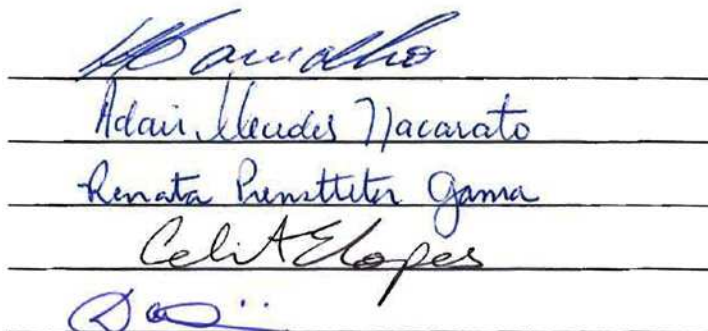 Carvalho
Adair Mendes Nacarato
Renata Prenstteter Gama
Celi A E Lopes